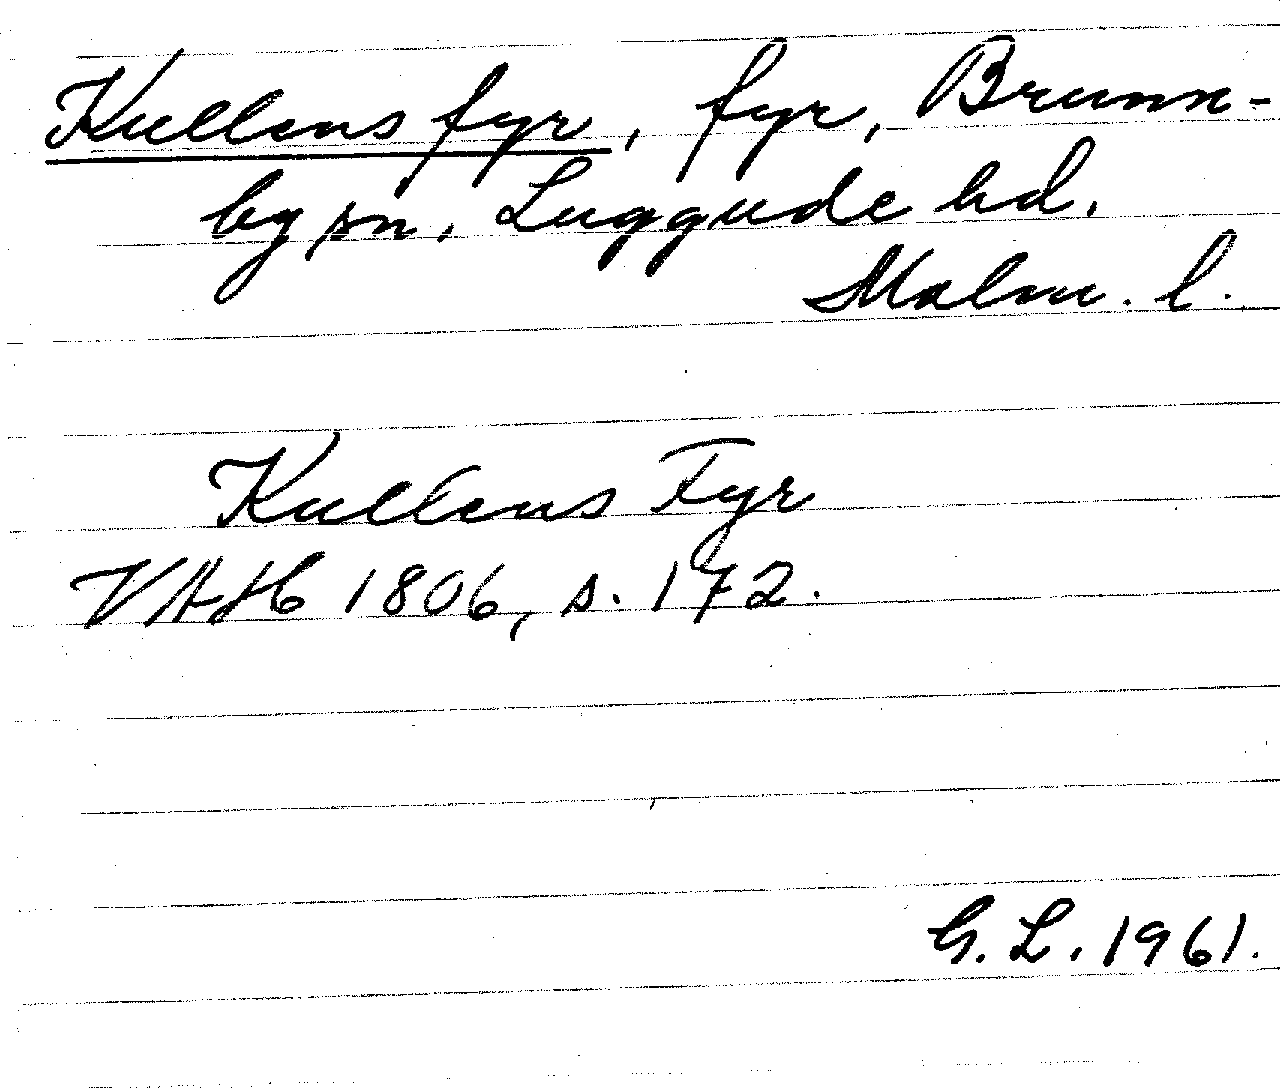 Kullens fyr, fyr, Brunn-
by sn, Luggude hd.
Malm. l.
Kullens Fyr
VAH 1806, s. 172.
G. L. 1961.